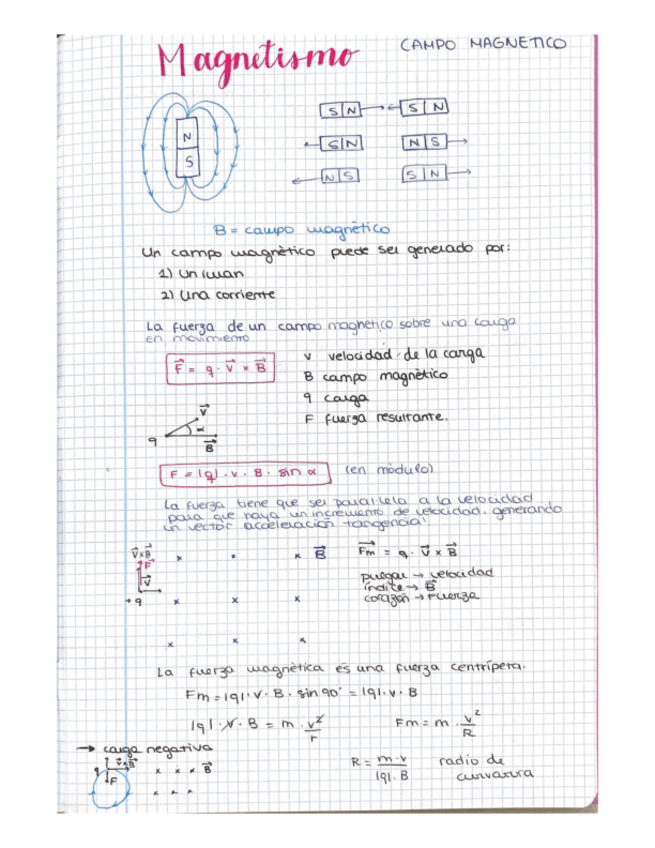 Magnetismo
CAMPO MAGNETICO
S N → ← S N
N
← S N N S →
S
← N S S N →
B = campo magnètico
Un campo magnètico puede ser generado por:
1) Un iman
2) Una corriente
La fuerza de un campo magnetico sobre una carga
en movimiento
F⃗ = q · V⃗ × B⃗
v velocidad de la carga
B campo magnètico
q carga
F fuerza resultante.
V⃗
α
q
B⃗
F = |q| · v · B · sin α (en mòdulo)
La fuerza tiene que ser parallela a la velocidad
para que haya un incremento de velocidad, generando
un vector acceleración tangencial
V⃗×B⃗ × × × B⃗ F⃗m = q · V⃗ × B⃗
F⃗
V⃗
pulgar → velocidad
índice → B⃗
+q × × × corazón → Fuerza
× × ×
La fuerza magnètica es una fuerza centrípeta.
Fm = |q| · V · B · sin 90° = |q| · v · B
|q| · v · B = m · v²/r Fm = m · v²/R
→ carga negativa
q V⃗×B⃗ × × × B⃗ R = m · v / |q| · B radio de
curvatura
F × × ×